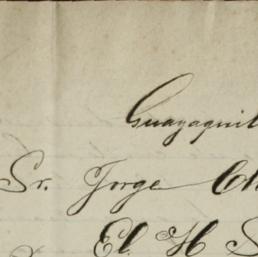 Guayaquil
Sr. Jorge Ch
El H S